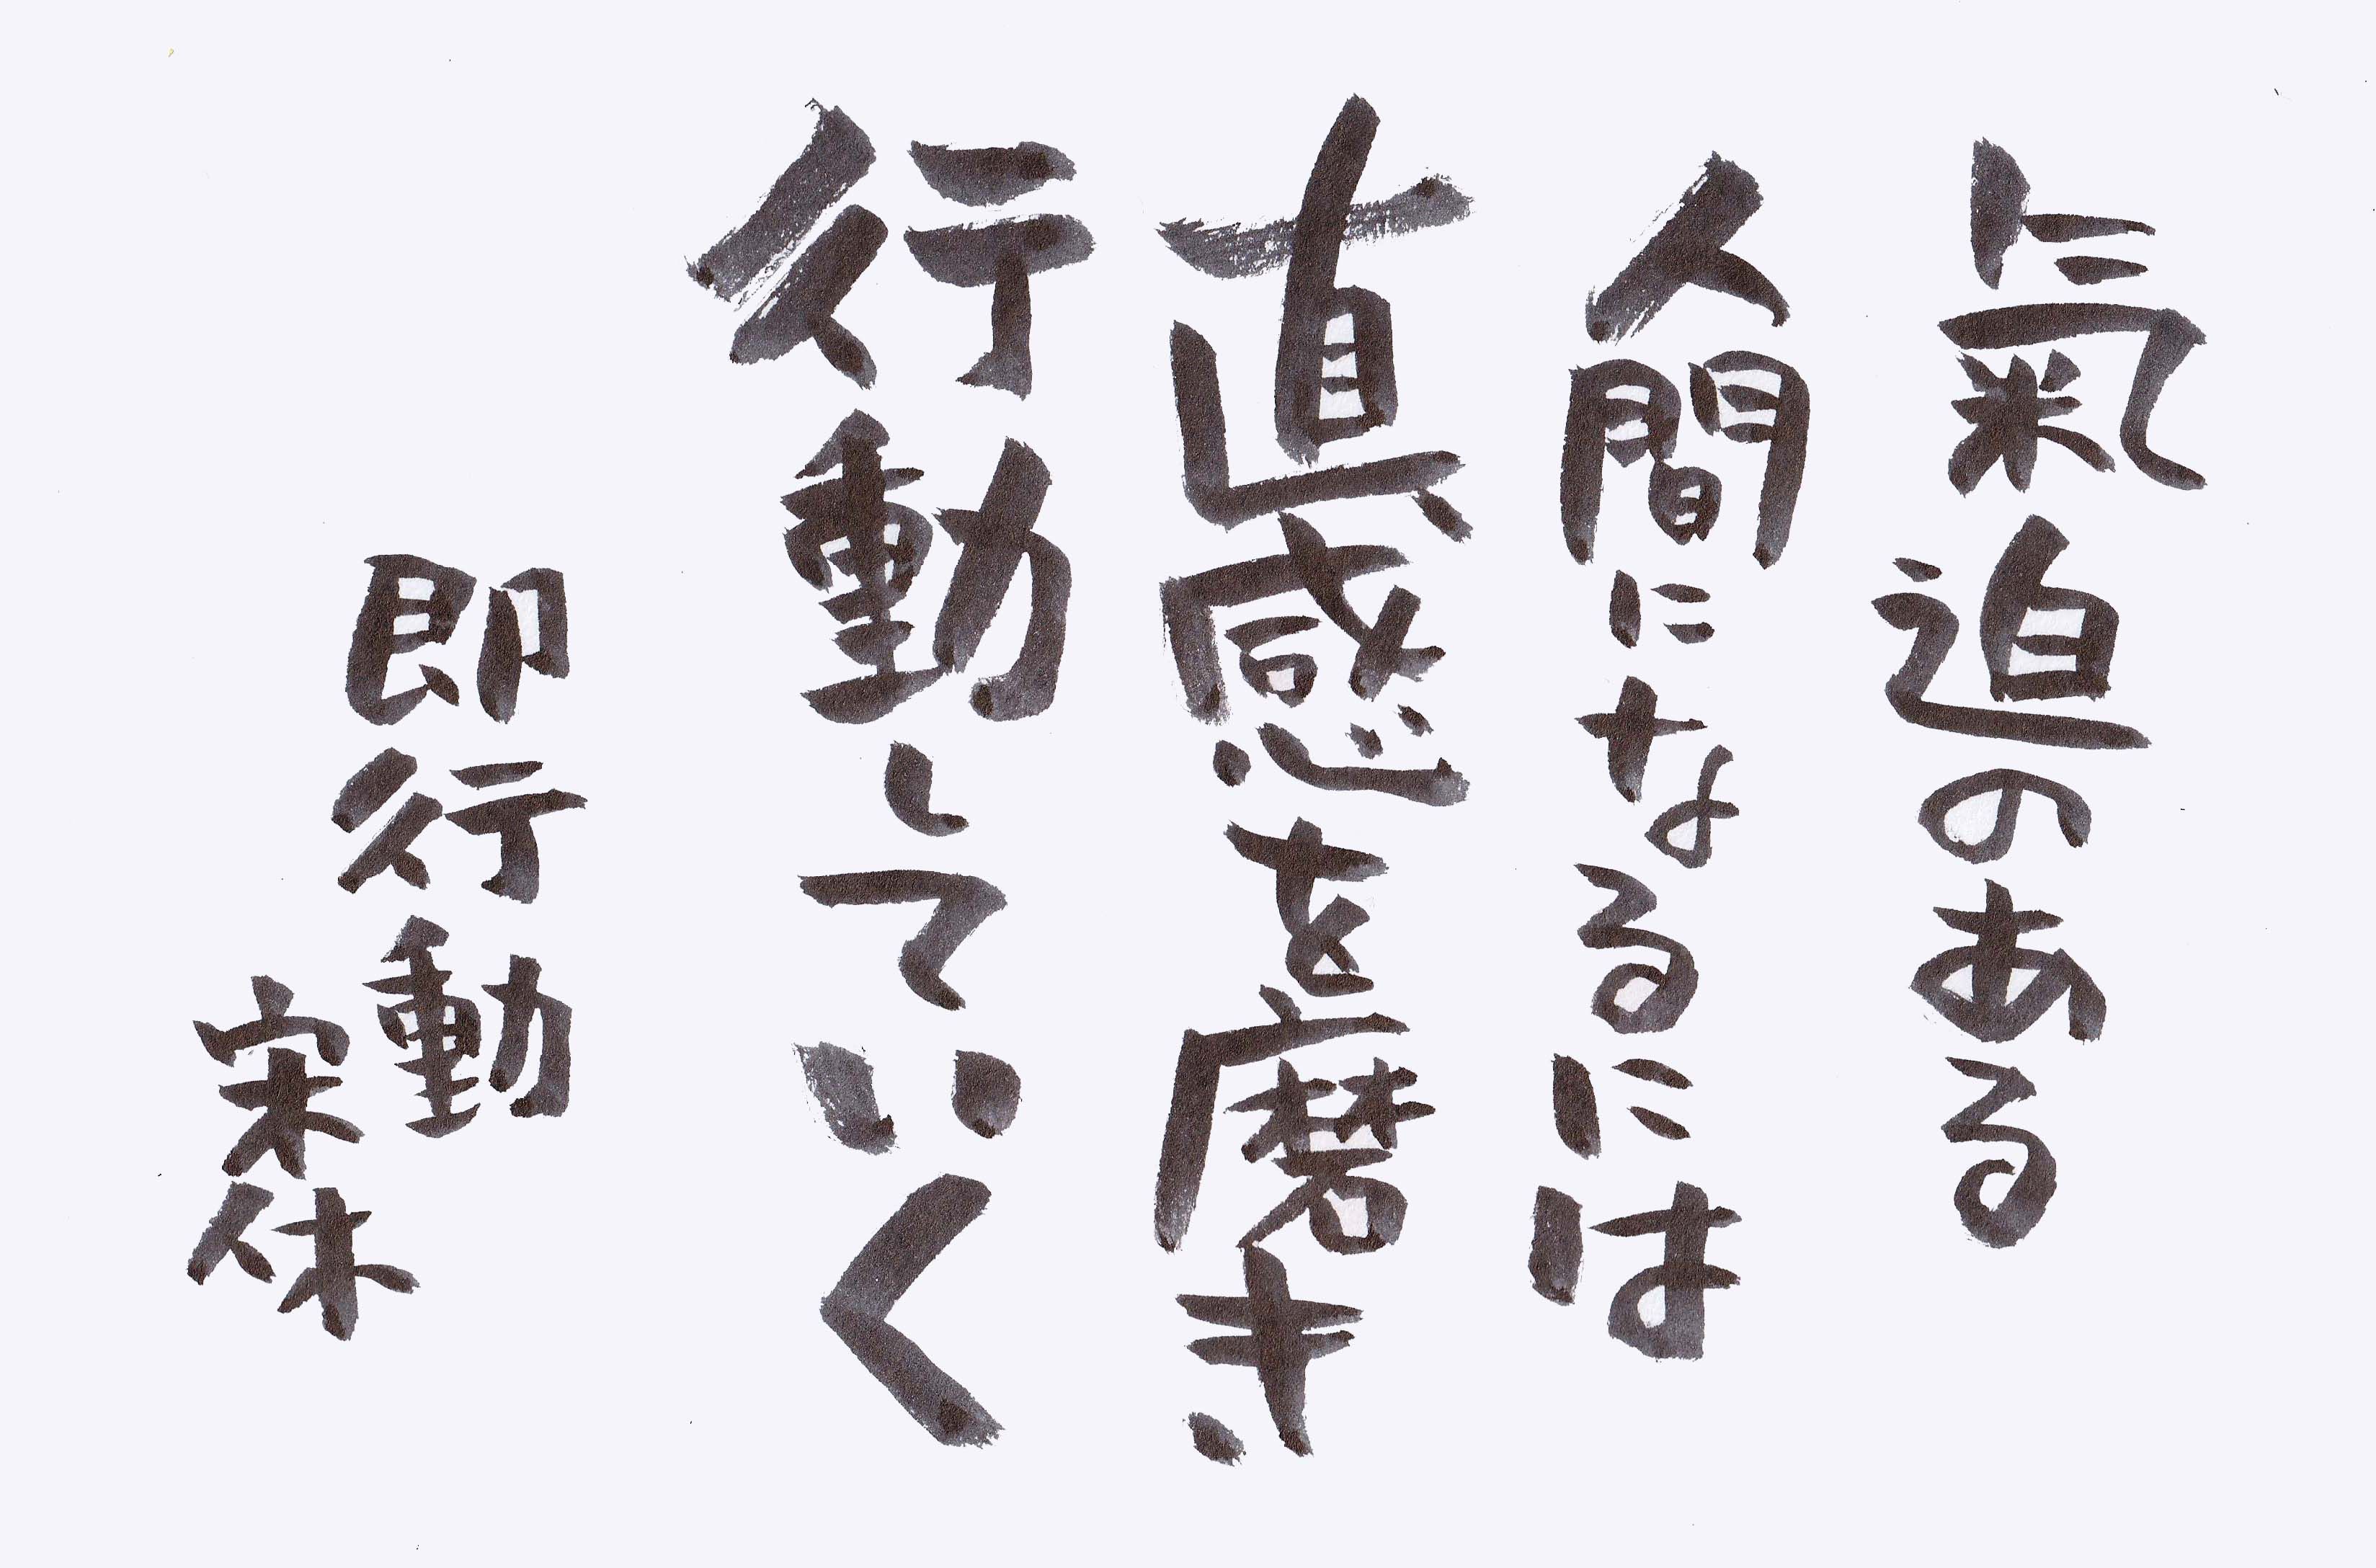 氣迫のある
人間になるには
直感を磨き
行動していく
即行動
宋休